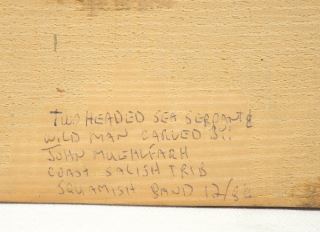 TWO HEADED SEA SERPANT &
WILD MAN CARVED BY:
JOHN
COAST SALISH TRIB
SQUAMISH BAND 12/